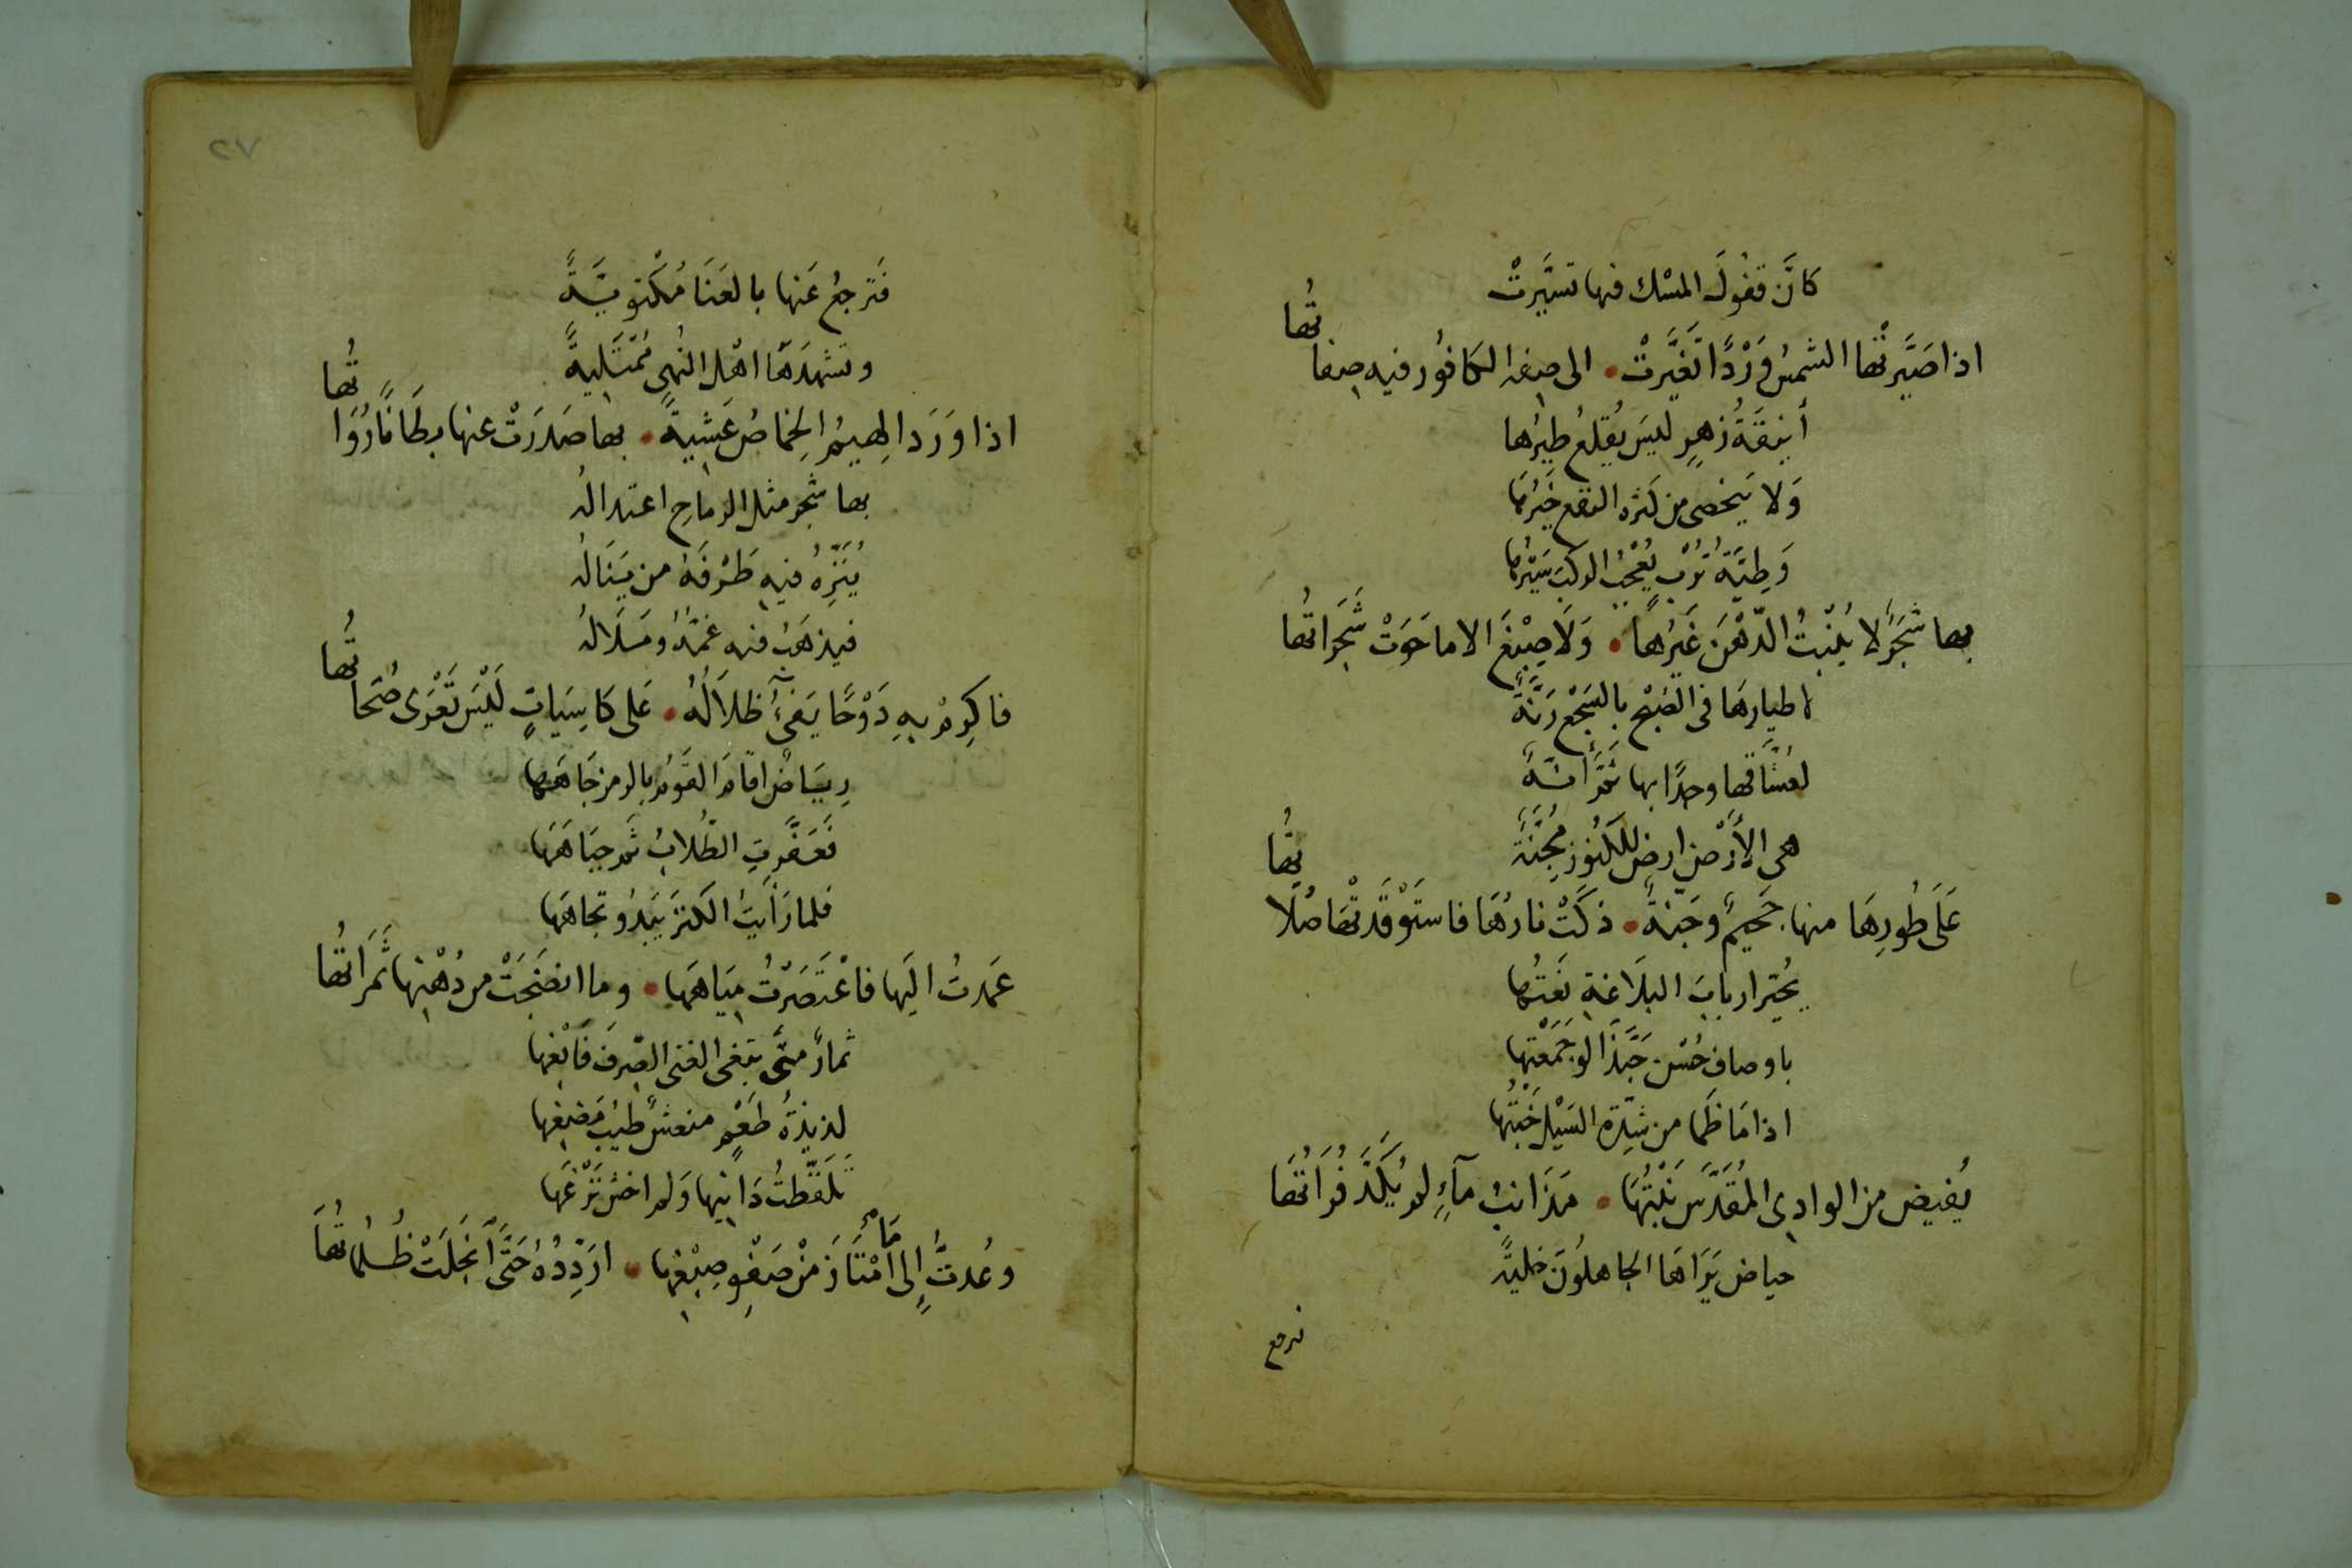 كانَّ قفُولَ المسْك فيها تسيَّرتْ
اذا صَيَّرتْها الشمسُ وَرْدًا تَغيَّرتْ • الى صِفة الكافُور فيه صِفاتُها
أنيقَةُ زهرٍ ليسَ يُقلعُ طيرُها
وَلا يَنحصى من كثرة النفع خَيرُها
وَطِيَّةُ تُرْبٍ يُعْجبُ الركبَ سَيْرُها
بها شجَرٌ لا يُنْبتُ الدّهْنَ غَيرُها • وَلَا صِبْغَ الا ما حَوَتْ شَجَراتُها
لاطيارهَا فى الصُبْح بالسَجْع رَنَّةٌ
لعُشّاقها وجدًا بها ثَمَّ أنّةٌ
هى الأَرْض ارضٌ للكُنُوز مُجِنَّةٌ
عَلَى طُورِهَا منها جَحيمٌ وجَنةٌ • ذكَتْ نارُهَا فاستَوْقَدتْهَا صُلاتُها
يُحيّر اربابَ البلَاغةِ نَعتُها
باوصاف حُسْن حَبَّذَا لو جَمَعْتها
اذا مَا ظَما من شِدّة السَيْل خَبْتُها
يُفيض من الوادى المُقَدَّس نَبْتُهَا • مَذَانبُ مآءٍ لم يُكَدَّر فُرَاتُهَا
حياض يَرَاهَا الجاهلُونَ خليّةً
فترجع
٧٢
فَترجعُ عَنها بالعَنَا مُكْتويَّةً
وتشهدَهَا اهْل النُهى مُمْتَليةً
اذا وَرَدَ الهِيمُ الخِمَاصُ عَشيةً • بها صَدرَتْ عنها بِطَانًا رُوَاتُها
بها شجر مثل الرماحِ اعتدالُه
يُنَزّهُ فيهِ طَرْفَهُ من يَنَالُه
فيذهَبُ فيه غمّهُ ومَلَالُه
فاكرِمْ بهِ دَوْحًا يَفىءُ ظلَالُهُ • عَلى كَاسِيَاتٍ لَيْسَ تَعْرَى ضُحَاتُها
رِيَاضٌ اقامَ القَومُ بالرمز جَاهَها
فَعَفّرتِ الطُّلابُ ثَم جِبَاهَهَا
فلما رَأيتُ الكنزَ يَبدُو تجاهَها
عَمدتُ اليَها فاعْتَصَرْتُ مِيَاهَهَا • وما انضَجَتْ من دُهْنِها ثَمَراتُها
ثمارٌ متَى يبتغى الفتى الصِرفَ فَابْغِها
لذيذةُ طَعْمٍ منعشٌ طيبُ مَضغِها
تَلَقَّطتُ دَانِيها وَلم اخشَ نَزْغَها
وعُدتُ إلى مَا امْتَازَ منْ صَفْوِ صِبْغِها • ارَدّدُهُ حَتَّى انْجَلَتْ ظُلُمَاتُهَا